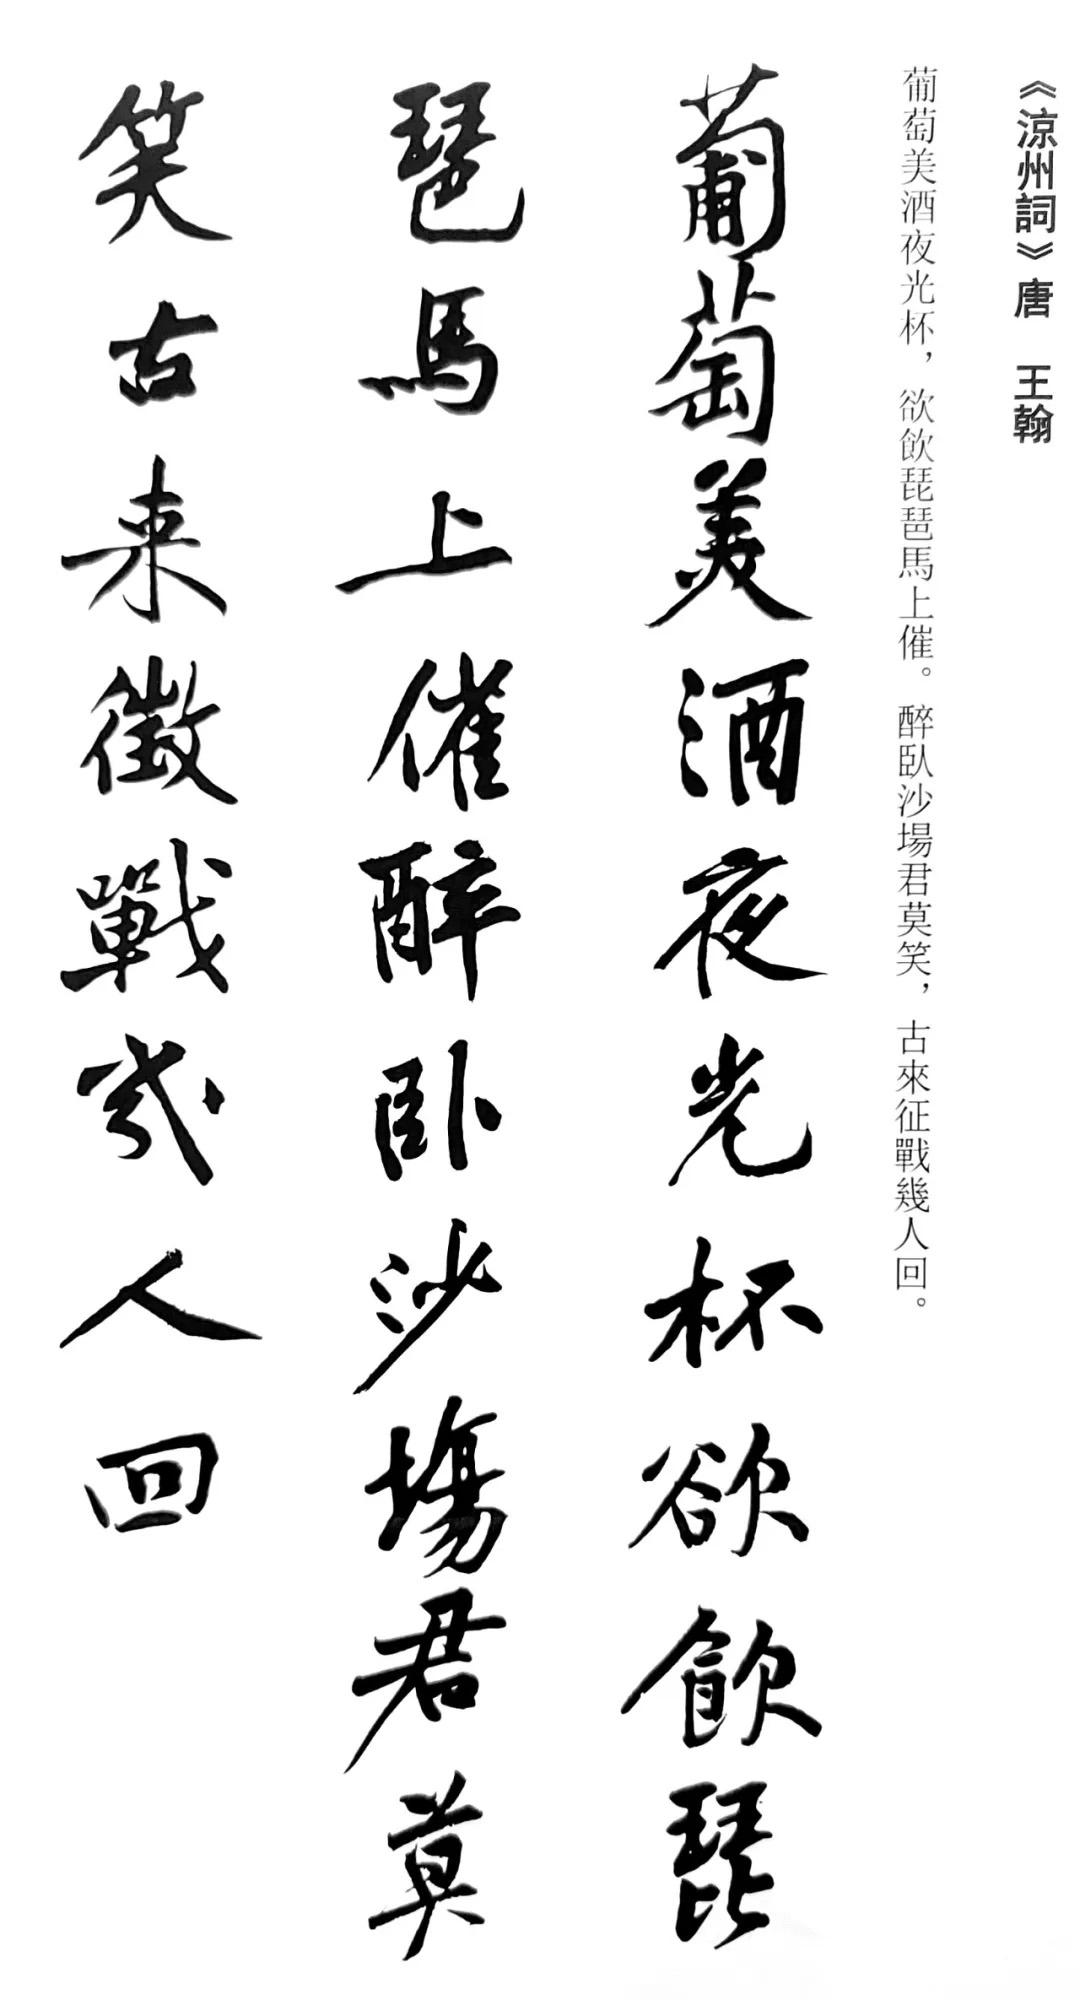 《涼州詞》唐　王翰
葡萄美酒夜光杯，欲飲琵琶馬上催。醉臥沙場君莫笑，古來征戰幾人回。
葡萄美酒夜光杯欲飲琵
琶馬上催醉卧沙場君莫
笑古来徵戰幾人回